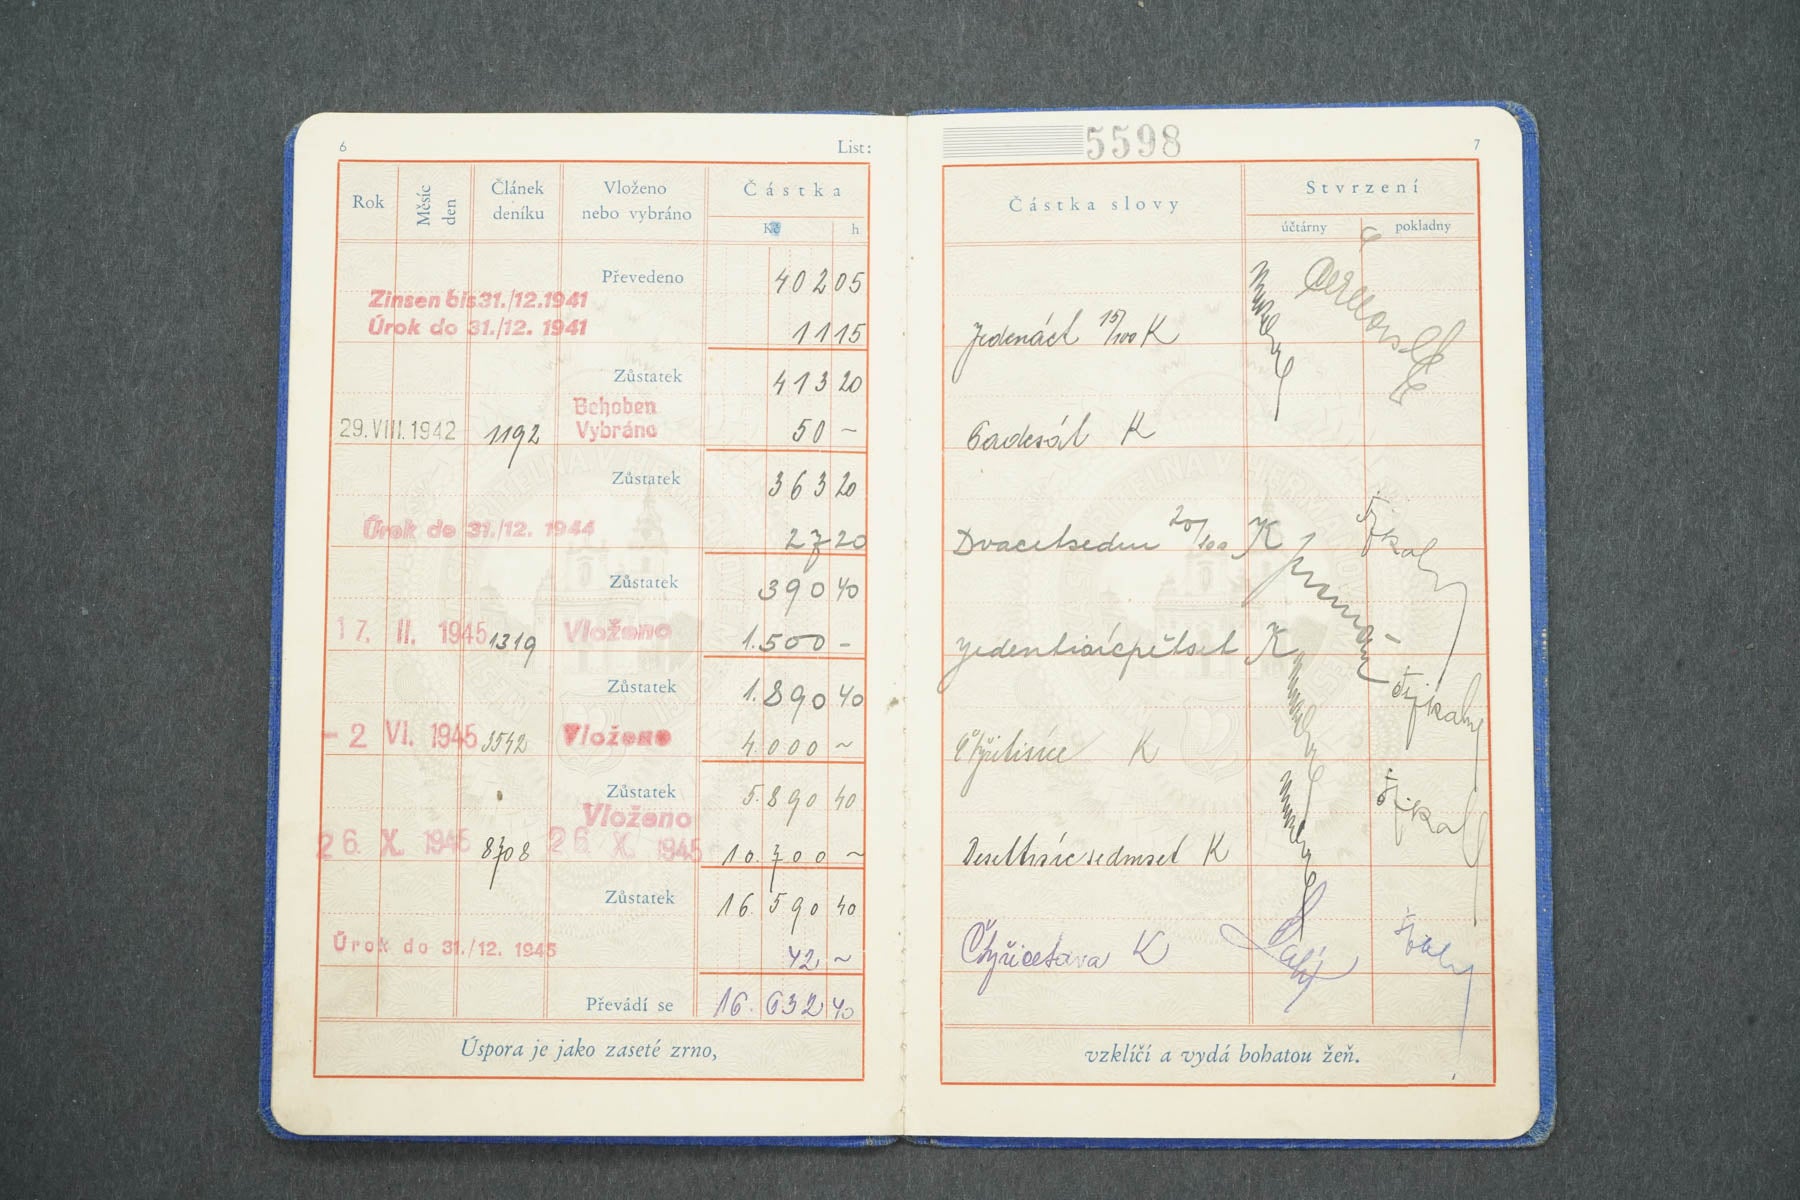 6 List:
Rok Měsíc den Článek deníku Vloženo nebo vybráno Částka
Kč h
Převedeno 402 05
Zinsen bis 31./12.1941
Úrok do 31./12. 1941 11 15
Zůstatek 413 20
Behoben
29. VIII. 1942 1192 Vybráno 50 ~
Zůstatek 363 20
Úrok do 31./12. 1944 27 20
Zůstatek 390 40
17. II. 1945 1319 Vloženo 1.500 -
Zůstatek 1.890 40
- 2 VI. 1945 3542 Vloženo 4.000 ~
Zůstatek 5.890 40
Vloženo
26. X. 1945 8708 26. X. 1945 10.700 ~
Zůstatek 16.590 40
Úrok do 31./12. 1945 42 ~
Převádí se 16.632 40
Úspora je jako zaseté zrno,
5598 7
Částka slovy Stvrzení
účtárny pokladny
Jedenáct 15/100 K
Padesát K
Dvacetsedm 20/100 K
Jedentisícpětset K
Čtyřitisíce K
Desettisícsedmset K
Čtyřicetdva K
vzklíčí a vydá bohatou žeň.